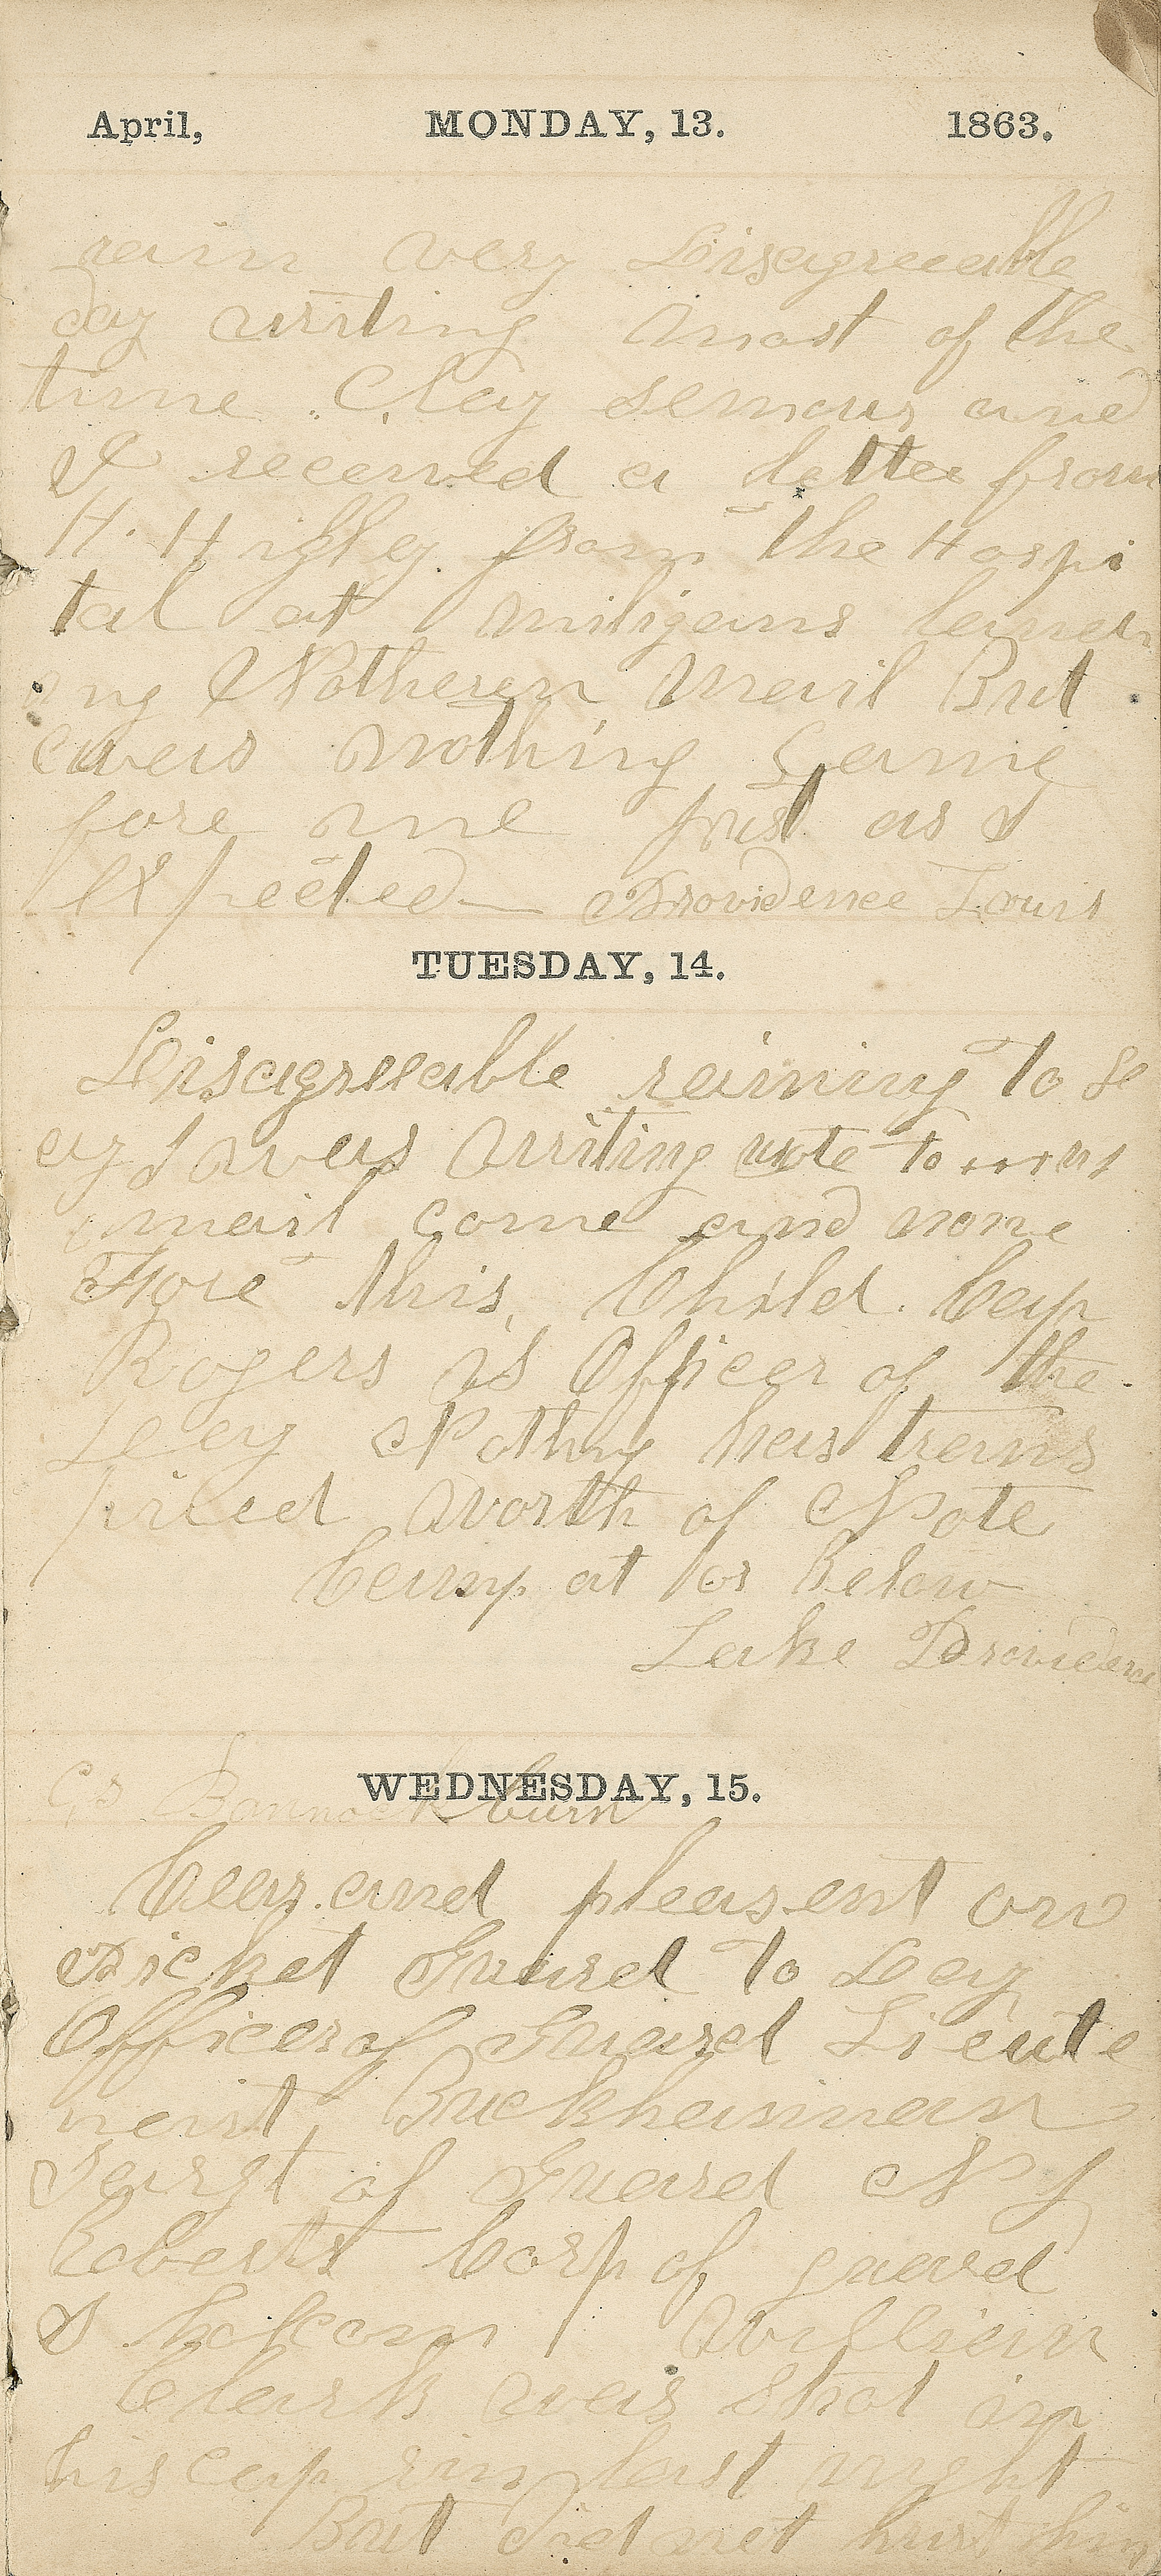 April, MONDAY, 13. 1863.
rain very Disagreeable
day writing most of the
time. Clay and
I received a letter from
H. Higley from the Hospi
tal at Miligans land
ing Nothern Mail But
was nothing came
fore me just as I
Expected Providence Louis
TUESDAY, 14.
Disagreeable raining to de
ay I was writing wrote to
mail come and none
Fore this Child. Cap
Rogers is Officer of the
Deay Nothng has trans
pired worth of Note
Camp at or Below
Lake Providence
WEDNESDAY, 15.
Bannockburn
Clear and pleasent on
Picket Guard to Day
Officer of Guard Lieute
nant Buckhannan
Sargt of Guard N J
Roberts Corp of guard
William
Clark was Shot in
his cap rim last night
But did not hurt him